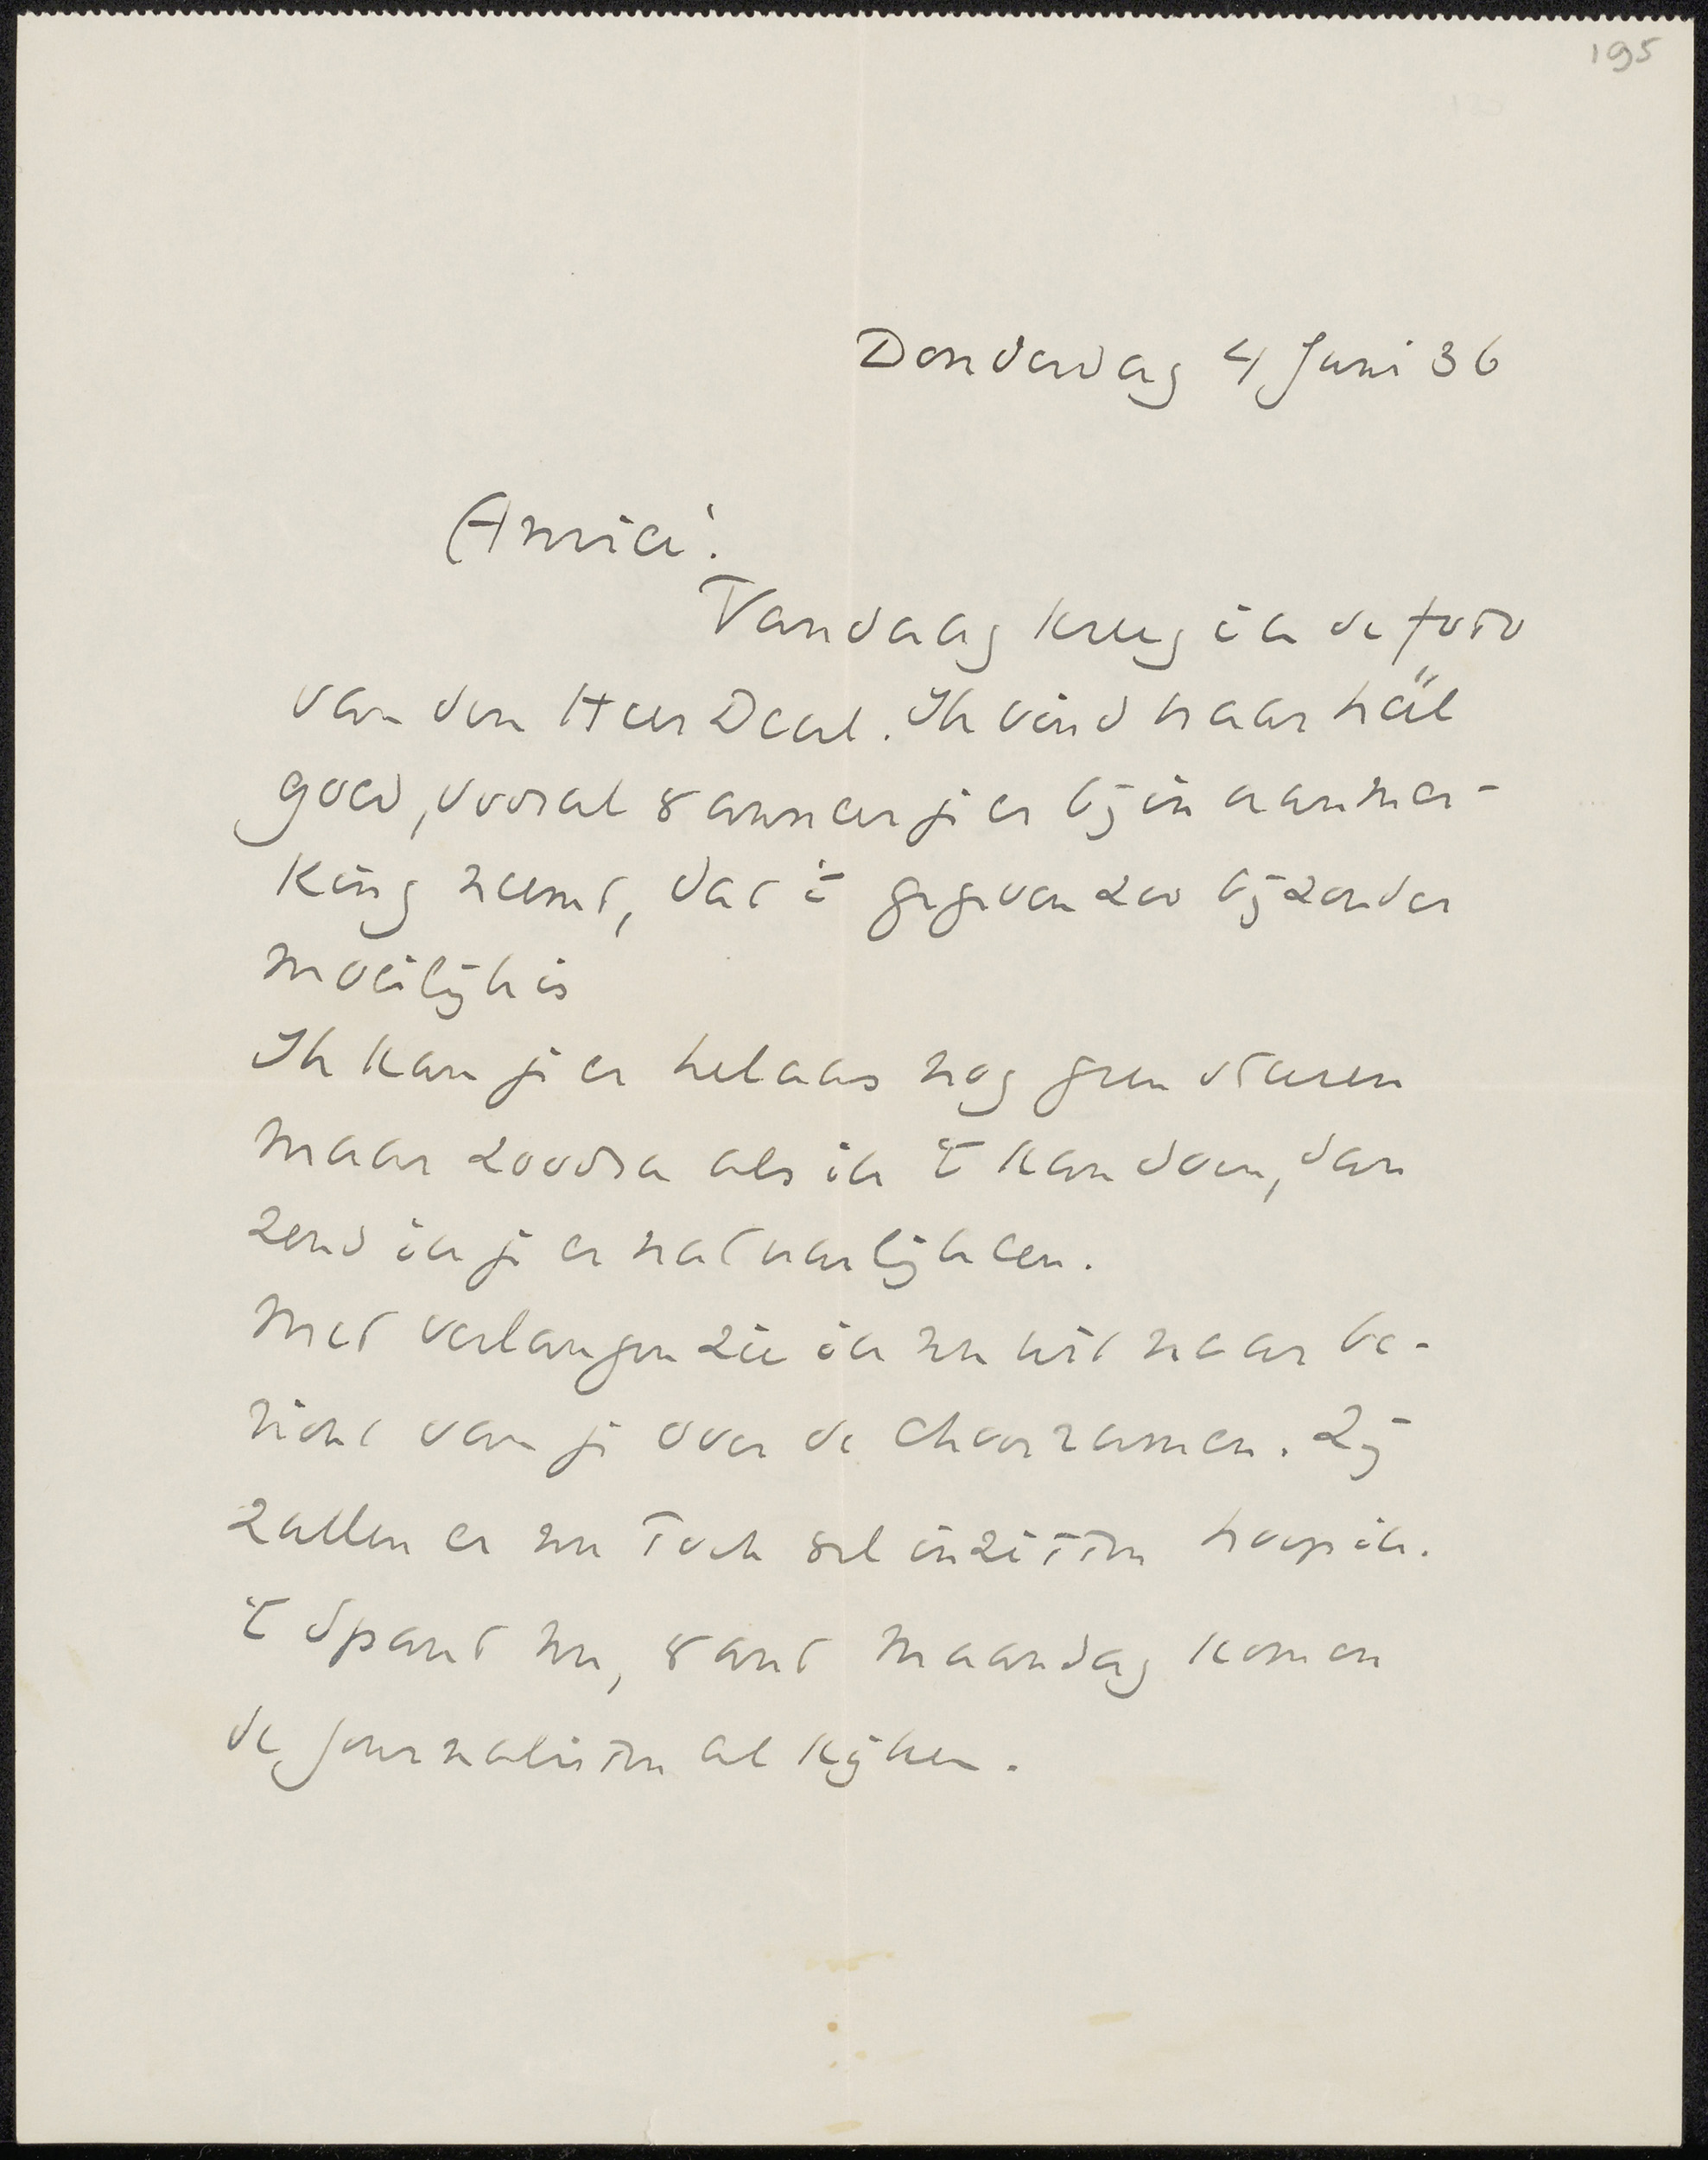 195
Donderdag 4 Juni 36
Amice!
Vandaag kreeg ik de foto
van den Heer Deel. Ik vind haar héél
goed, vooral wanneer je er bij in aanmer-
king neemt, dat 't gegeven zoo bijzonder
moeilijk is
Ik kan je er helaas nog geen sturen
maar zoodra als ik 't kan doen, dan
zend ik je er natuurlijk een.
Met verlangen zie ik nu uit naar be-
richt van je over de choorramen. Zij
zullen er nu toch wel inzitten hoop ik.
't Spant nu, want Maandag komen
de journalisten al kijken.